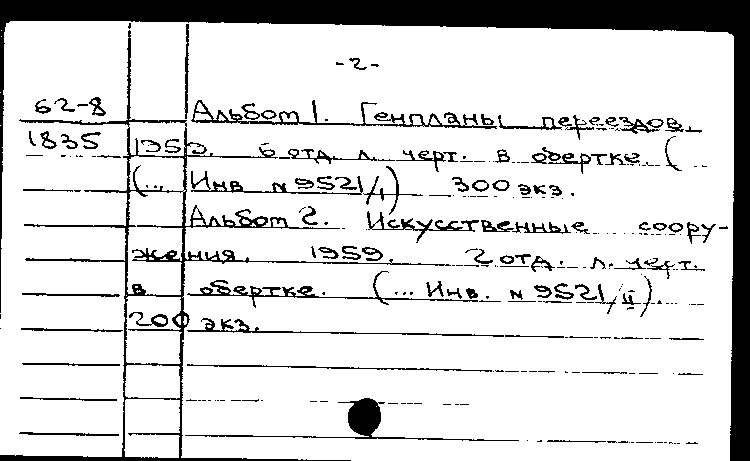 -2-
62-8 Альбом 1. Генпланы переездов.
1835 1959. 6 отд. л. черт. в обертке. (...
(... Инв № 9521/I) 300 экз.
Альбом 2. Искусственные соору-
жения. 1959. 2 отд. л. черт.
в обертке. (... Инв. № 9521/II).
200 экз.